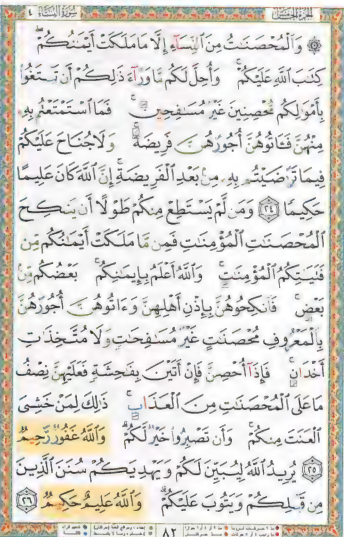 سورة النساء ٤
الجزء الخامس
۞ وَٱلْمُحْصَنَـٰتُ مِنَ ٱلنِّسَآءِ إِلَّا مَا مَلَكَتْ أَيْمَـٰنُكُمْ
كِتَـٰبَ ٱللَّهِ عَلَيْكُمْ ۚ وَأُحِلَّ لَكُم مَّا وَرَآءَ ذَٰلِكُمْ أَن تَبْتَغُوا۟
بِأَمْوَٰلِكُم مُّحْصِنِينَ غَيْرَ مُسَـٰفِحِينَ ۚ فَمَا ٱسْتَمْتَعْتُم بِهِۦ
مِنْهُنَّ فَـَٔاتُوهُنَّ أُجُورَهُنَّ فَرِيضَةً ۚ وَلَا جُنَاحَ عَلَيْكُمْ
فِيمَا تَرَٰضَيْتُم بِهِۦ مِنۢ بَعْدِ ٱلْفَرِيضَةِ ۚ إِنَّ ٱللَّهَ كَانَ عَلِيمًا
حَكِيمًا ٢٤ وَمَن لَّمْ يَسْتَطِعْ مِنكُمْ طَوْلًا أَن يَنكِحَ
ٱلْمُحْصَنَـٰتِ ٱلْمُؤْمِنَـٰتِ فَمِن مَّا مَلَكَتْ أَيْمَـٰنُكُم مِّن
فَتَيَـٰتِكُمُ ٱلْمُؤْمِنَـٰتِ ۚ وَٱللَّهُ أَعْلَمُ بِإِيمَـٰنِكُم ۚ بَعْضُكُم مِّنۢ
بَعْضٍ ۚ فَٱنكِحُوهُنَّ بِإِذْنِ أَهْلِهِنَّ وَءَاتُوهُنَّ أُجُورَهُنَّ
بِٱلْمَعْرُوفِ مُحْصَنَـٰتٍ غَيْرَ مُسَـٰفِحَـٰتٍ وَلَا مُتَّخِذَٰتِ
أَخْدَانٍ ۚ فَإِذَآ أُحْصِنَّ فَإِنْ أَتَيْنَ بِفَـٰحِشَةٍ فَعَلَيْهِنَّ نِصْفُ
مَا عَلَى ٱلْمُحْصَنَـٰتِ مِنَ ٱلْعَذَابِ ۚ ذَٰلِكَ لِمَنْ خَشِىَ
ٱلْعَنَتَ مِنكُمْ ۚ وَأَن تَصْبِرُوا۟ خَيْرٌ لَّكُمْ ۗ وَٱللَّهُ غَفُورٌ رَّحِيمٌ
٢٥ يُرِيدُ ٱللَّهُ لِيُبَيِّنَ لَكُمْ وَيَهْدِيَكُمْ سُنَنَ ٱلَّذِينَ
مِن قَبْلِكُمْ وَيَتُوبَ عَلَيْكُمْ ۗ وَٱللَّهُ عَلِيمٌ حَكِيمٌ ٢٦
٨٢